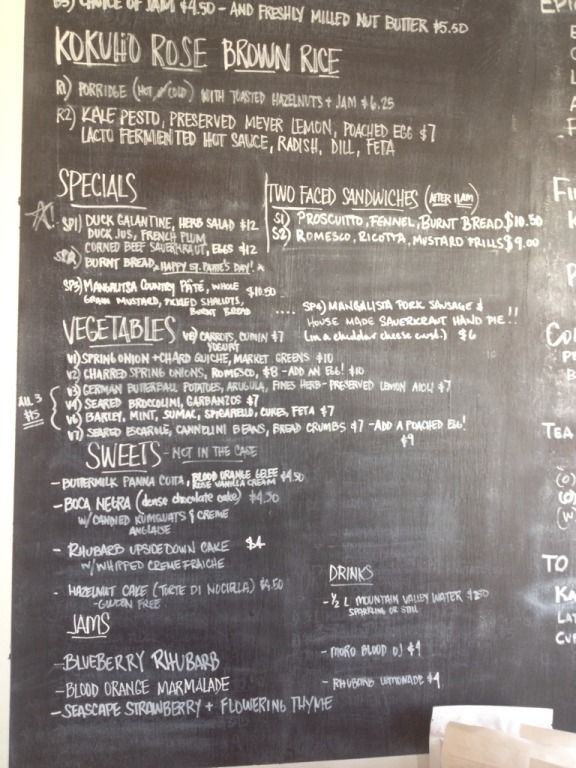 B3) CHOICE OF JAM $4.50 - AND FRESHLY MILLED NUT BUTTER $5.50
KOKUHO ROSE BROWN RICE
R1) PORRIDGE (HOT OR COLD) WITH TOASTED HAZELNUTS + JAM $6.25
R2) KALE PESTO, PRESERVED MEYER LEMON, POACHED EGG $7
LACTO FERMENTED HOT SAUCE, RADISH, DILL, FETA
SPECIALS
SP1) DUCK GALANTINE, HERB SALAD $12
DUCK JUS, FRENCH PLUM
SP2) CORNED BEEF SAUERKRAUT, EGGS $12
BURNT BREAD * HAPPY ST. PATTIE'S DAY! *
SP3) MANGALITSA COUNTRY PÂTÉ, WHOLE $10.50
GRAIN MUSTARD, PICKLED SHALLOTS,
BURNT BREAD
TWO FACED SANDWICHES (AFTER 11AM)
S1) PROSCUITTO, FENNEL, BURNT BREAD $10.50
S2) ROMESCO, RICOTTA, MUSTARD FRILLS $9.00
.... SP4) MANGALISTA PORK SAUSAGE &
HOUSE MADE SAUERKRAUT HAND PIE!!
(in a cheddar cheese crust.) $6
VEGETABLES
V8) CARROTS, CUMIN $7
YOGURT
V1) SPRING ONION + CHARD QUICHE, MARKET GREENS $10
V2) CHARRED SPRING ONIONS, ROMESCO, $8 - ADD AN EGG! $10
V3) GERMAN BUTTERBALL POTATOES, ARUGULA, FINES HERB - PRESERVED LEMON AIOLI $7
V4) SEARED BROCCOLINI, GARBANZOS $7
V6) BARLEY, MINT, SUMAC, SPIGARELLO, CUKES, FETA $7
V7) SEARED ESCAROLE, CANNELINI BEANS, BREAD CRUMBS $7 - ADD A POACHED EGG!
$9
ALL 3
$15
SWEETS - NOT IN THE CASE
- BUTTERMILK PANNA COTTA, BLOOD ORANGE GELEE $4.50
ROSE VANILLA CREAM
- BOCA NEGRA (dense chocolate cake) $4.50
W/ CANDIED KUMQUATS & CREME
ANGLAISE
- RHUBARB UPSIDEDOWN CAKE $4
W/ WHIPPED CREME FRAICHE
- HAZELNUT CAKE (TORTE DI NOCIOLLA) $4.50
- GLUTEN FREE
JAMS
- BLUEBERRY RHUBARB
- BLOOD ORANGE MARMALADE
- SEASCAPE STRAWBERRY + FLOWERING THYME
DRINKS
- 1/2 L MOUNTAIN VALLEY WATER $2.50
SPARKLING OR STILL
- MORO BLOOD OJ $4
- RHUBARB LEMONADE $4
TEA
TO